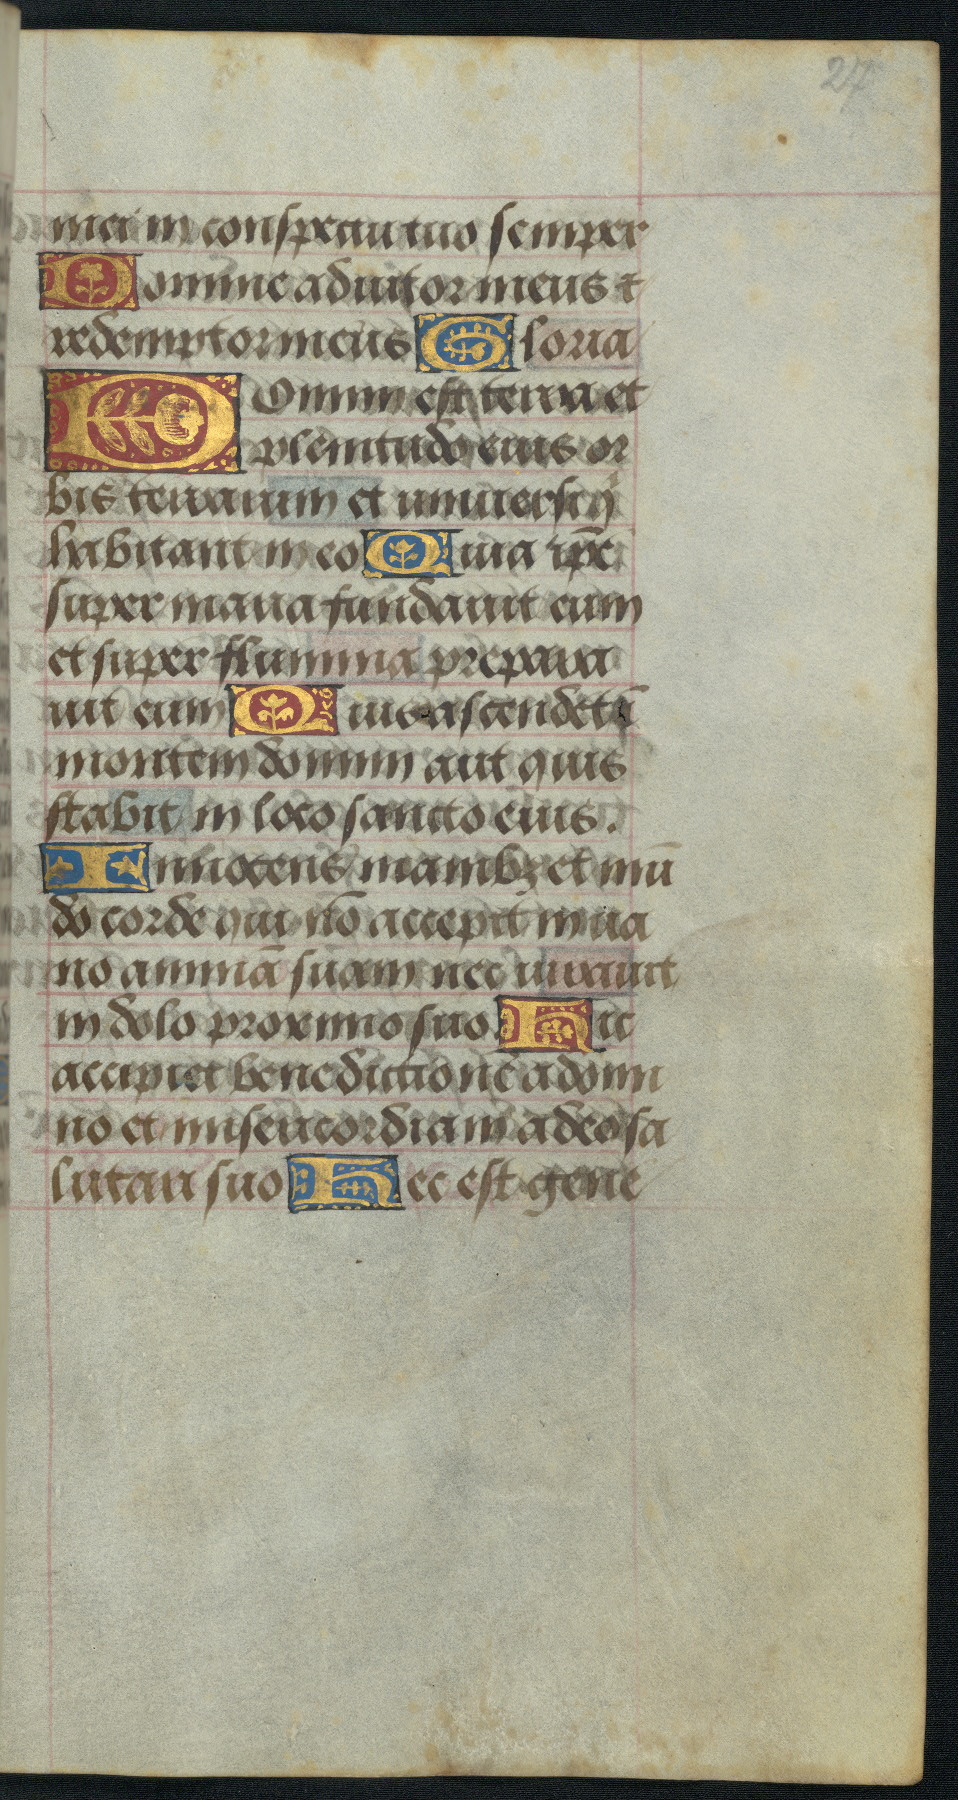 27
mei in conspectu tuo semper
Domine adiutor meus et
redemptor meus Gloria
Domini est terra et
plenitudo eius or
bis terrarum et universi q̇
habitant in eo Quia ip̄e
super maria fundauit eum
et super flumina prepara
uit eum Quis ascendet ī
montem domini aut quis
stabit in loco sancto eius.
Innocens manibꝫ et mū
do corde qui nō accepit in ua
no animā suam nec iurauit
in dolo proximo suo Hic
accipiet benedictionē a domi
no et misericordiam a deo sa
lutari suo Hec est gene